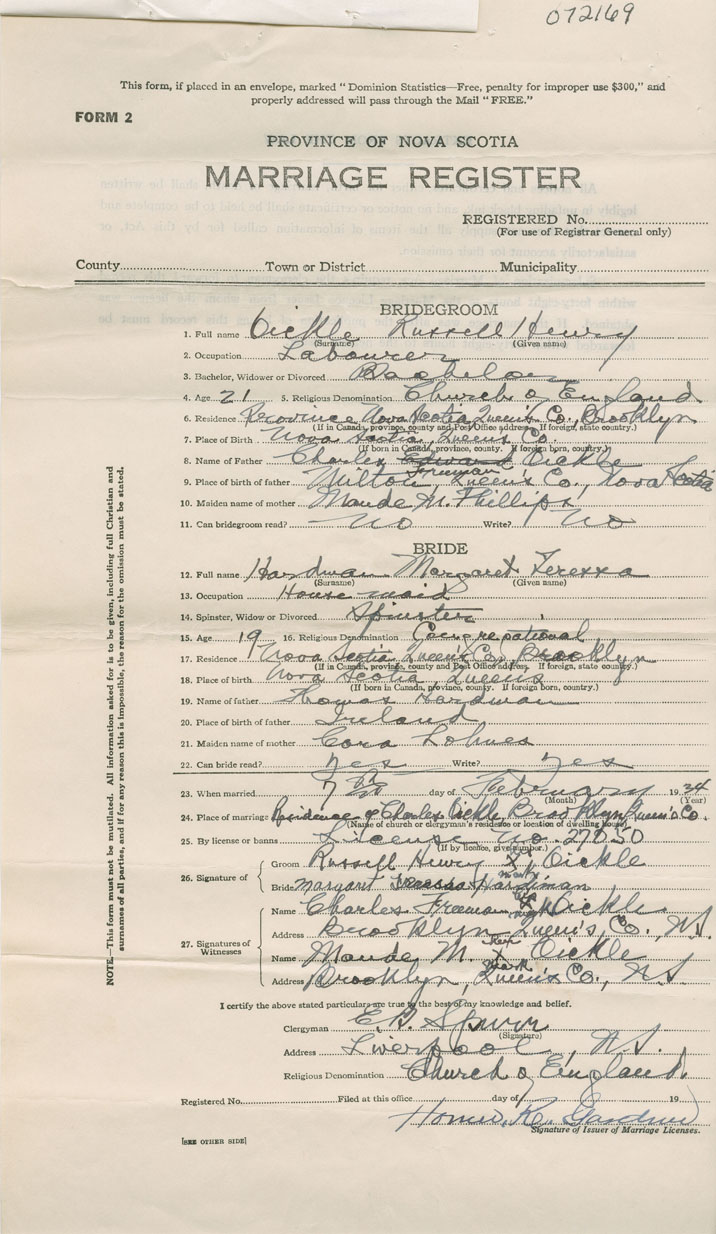 072169
This form, if placed in an envelope, marked "Dominion Statistics—Free, penalty for improper use $300," and
properly addressed will pass through the Mail "FREE."
FORM 2
PROVINCE OF NOVA SCOTIA
MARRIAGE REGISTER
REGISTERED No.
(For use of Registrar General only)
County Town or District Municipality
BRIDEGROOM
1. Full name Oickle Russell Henry
(Surname) (Given name)
2. Occupation Labourer
3. Bachelor, Widower or Divorced Bachelor
4. Age 21 5. Religious Denomination Church of England
6. Residence Province Nova Scotia, Queen's Co., Brooklyn
(If in Canada, province, county and Post Office address. If foreign, state country.)
7. Place of Birth Nova Scotia, Queens Co.
(If born in Canada, province, county. If foreign born, country.)
8. Name of Father Charles Edward Freeman Oickle
9. Place of birth of father Milton, Queens Co., Nova Scotia
10. Maiden name of mother Maude M. Phillips
11. Can bridegroom read? No Write? No
BRIDE
12. Full name Hardman Margaret Teressa
(Surname) (Given name)
13. Occupation House maid
14. Spinster, Widow or Divorced Spinster
15. Age 19 16. Religious Denomination Congregational
17. Residence Nova Scotia Queen's Co., Brooklyn
(If in Canada, province, county and Post Office address. If foreign, state country.)
18. Place of birth Nova Scotia, Queens
(If born in Canada, province, county. If foreign born, country.)
19. Name of father Thomas Hardman
20. Place of birth of father Ireland
21. Maiden name of mother Cora Lohnes
22. Can bride read? yes Write? yes
23. When married 7th day of February 1934
(Month) (Year)
24. Place of marriage Residence of Charles Oickle, Brooklyn, Queen's Co.
(Name of church or clergyman's residence or location of dwelling house)
25. By license or banns License No. 27050
(If by licence, give number.)
26. Signature of
Groom Russell Henry X Oickle
mark
Bride Margaret Teressa Hardman
27. Signatures of Witnesses
Name Charles Freeman X Oickle
Address Brooklyn, Queen's, Co., N.S.
Name Maude M. her X mark Oickle
Address Brooklyn, Queen's Co., N.S.
I certify the above stated particulars are true to the best of my knowledge and belief.
Clergyman E.B. Spurr
(Signature)
Address Liverpool, N.S.
Religious Denomination Church of England
Registered No. Filed at this office day of 19
Homer K. Gardner
Signature of Issuer of Marriage Licenses.
[SEE OTHER SIDE]
NOTE—This form must not be mutilated. All information asked for is to be given, including full Christian and
surnames of all parties, and if for any reason this is impossible, the reason for the omission must be stated.